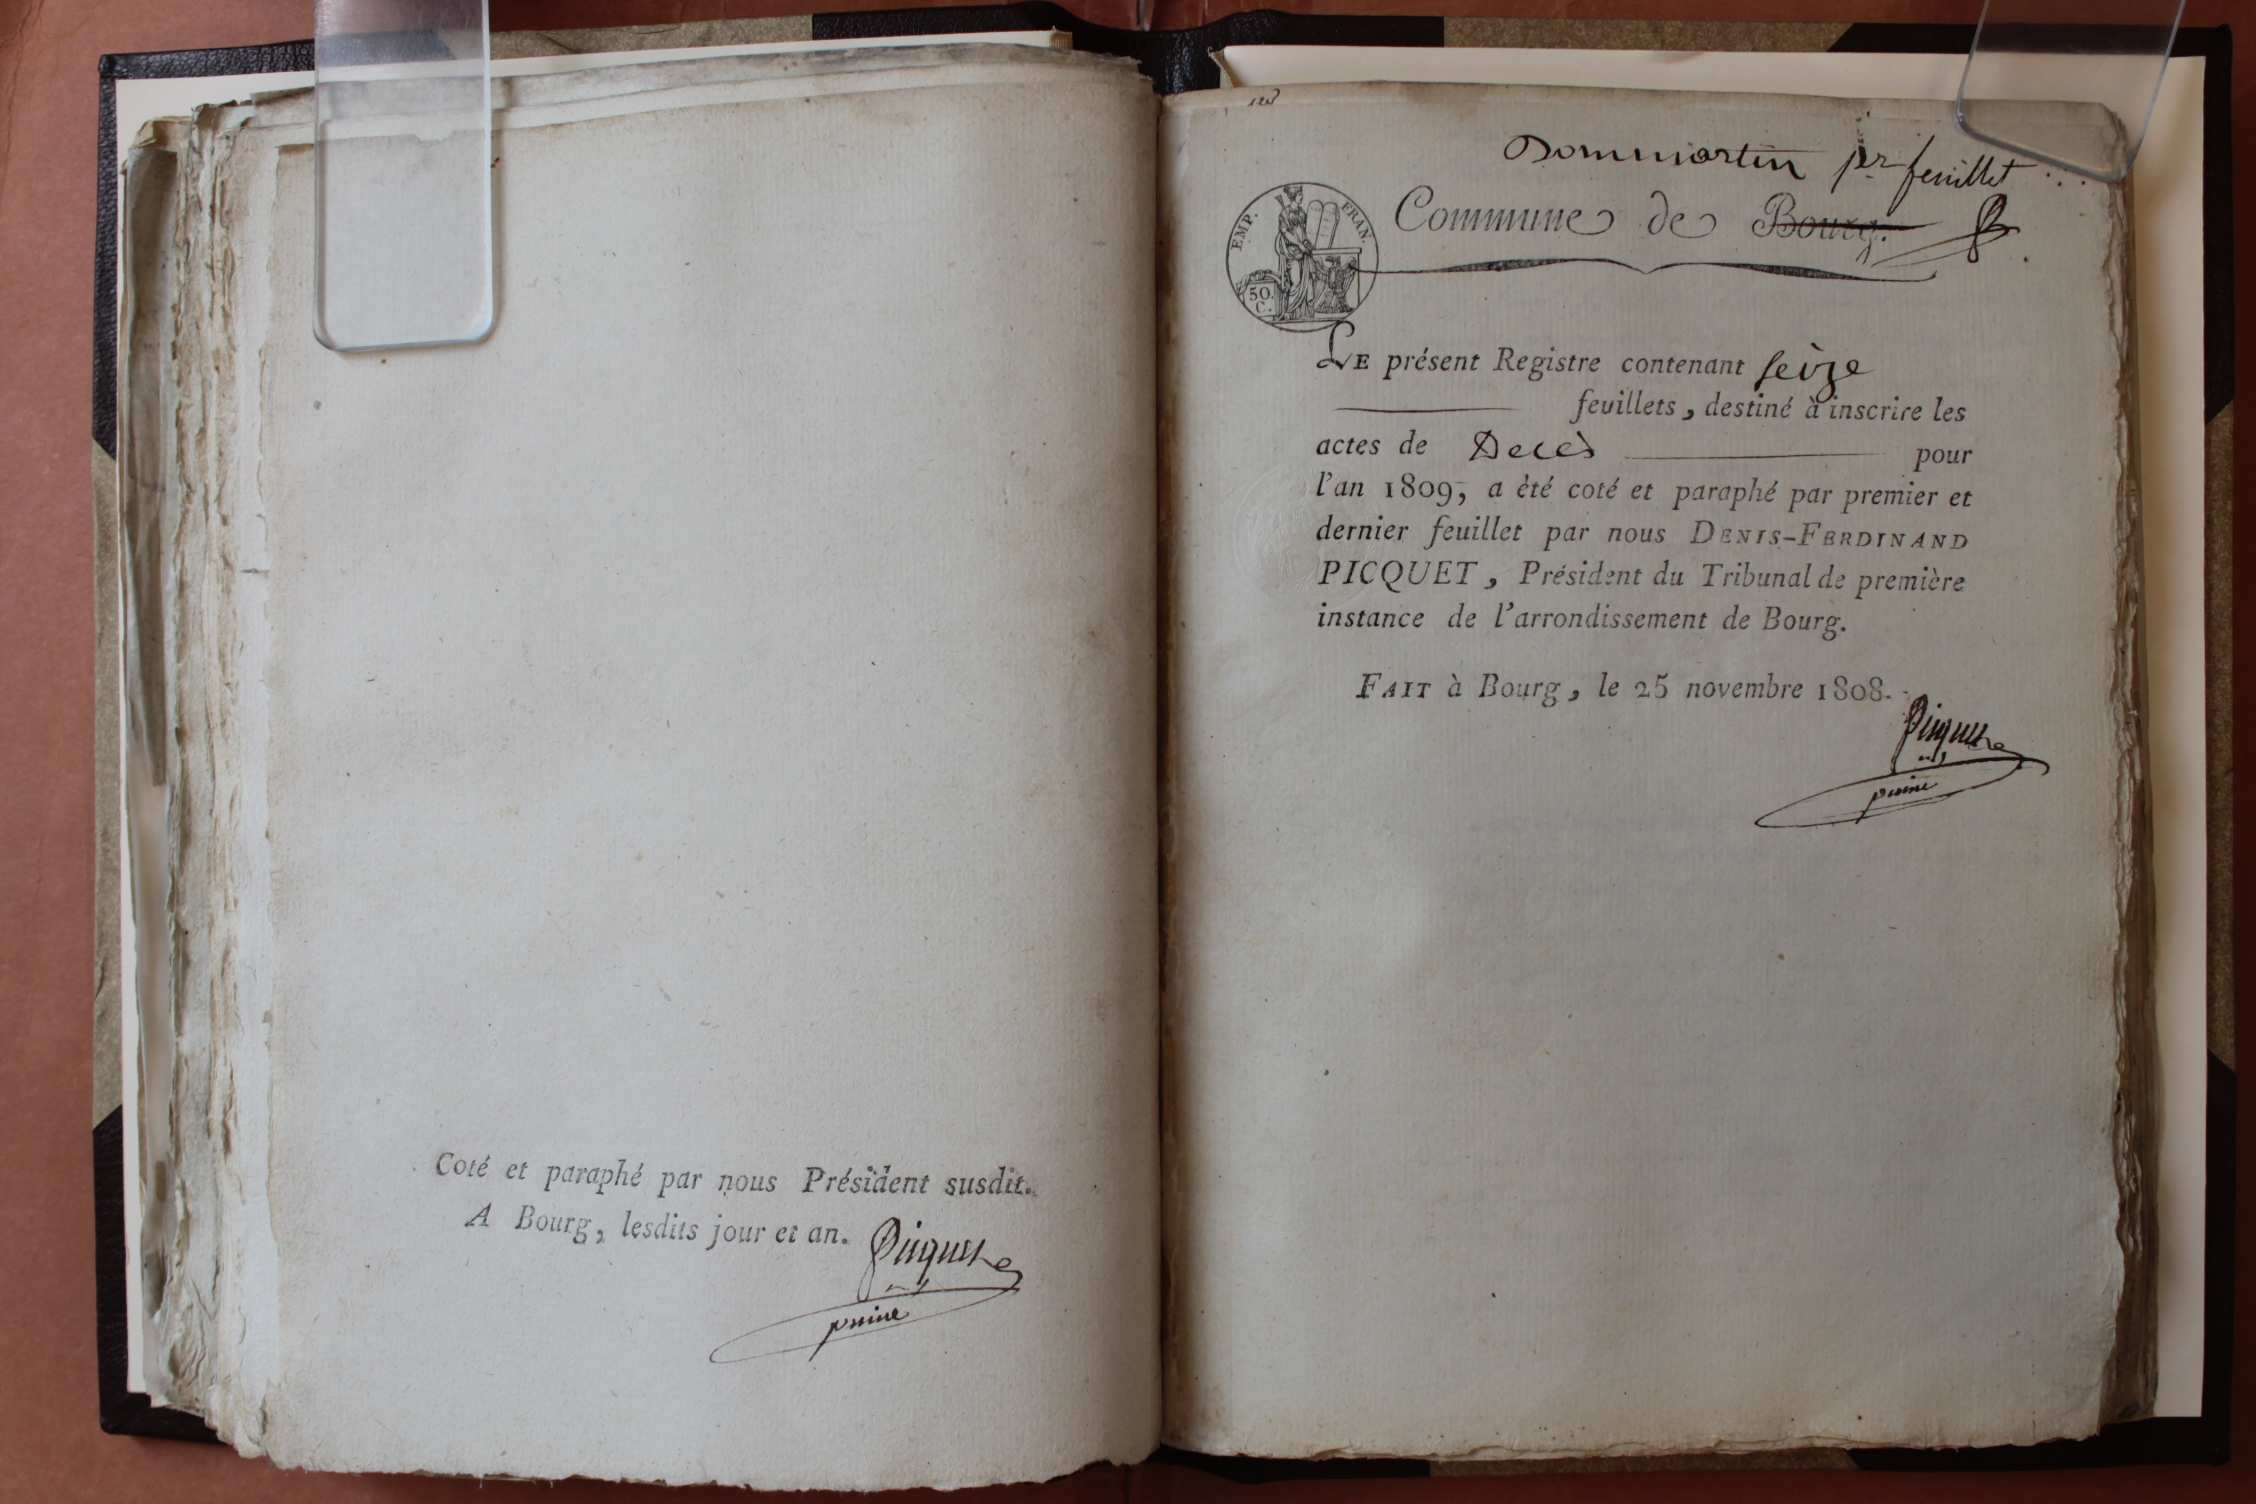 Coté et paraphé par nous Président susdit.
A Bourg, lesdits jour et an.
Picquet
Dommartin per feuillet
EMP. FRAN.
50.
C.
Commune de Bourg.
LE présent Registre contenant seize
feuillets, destiné à inscrire les
actes de Decès pour
l'an 1809, a été coté et paraphé par premier et
dernier feuillet par nous DENIS-FERDINAND
PICQUET, Président du Tribunal de première
instance de l'arrondissement de Bourg.
FAIT à Bourg, le 25 novembre 1808.
Picquet